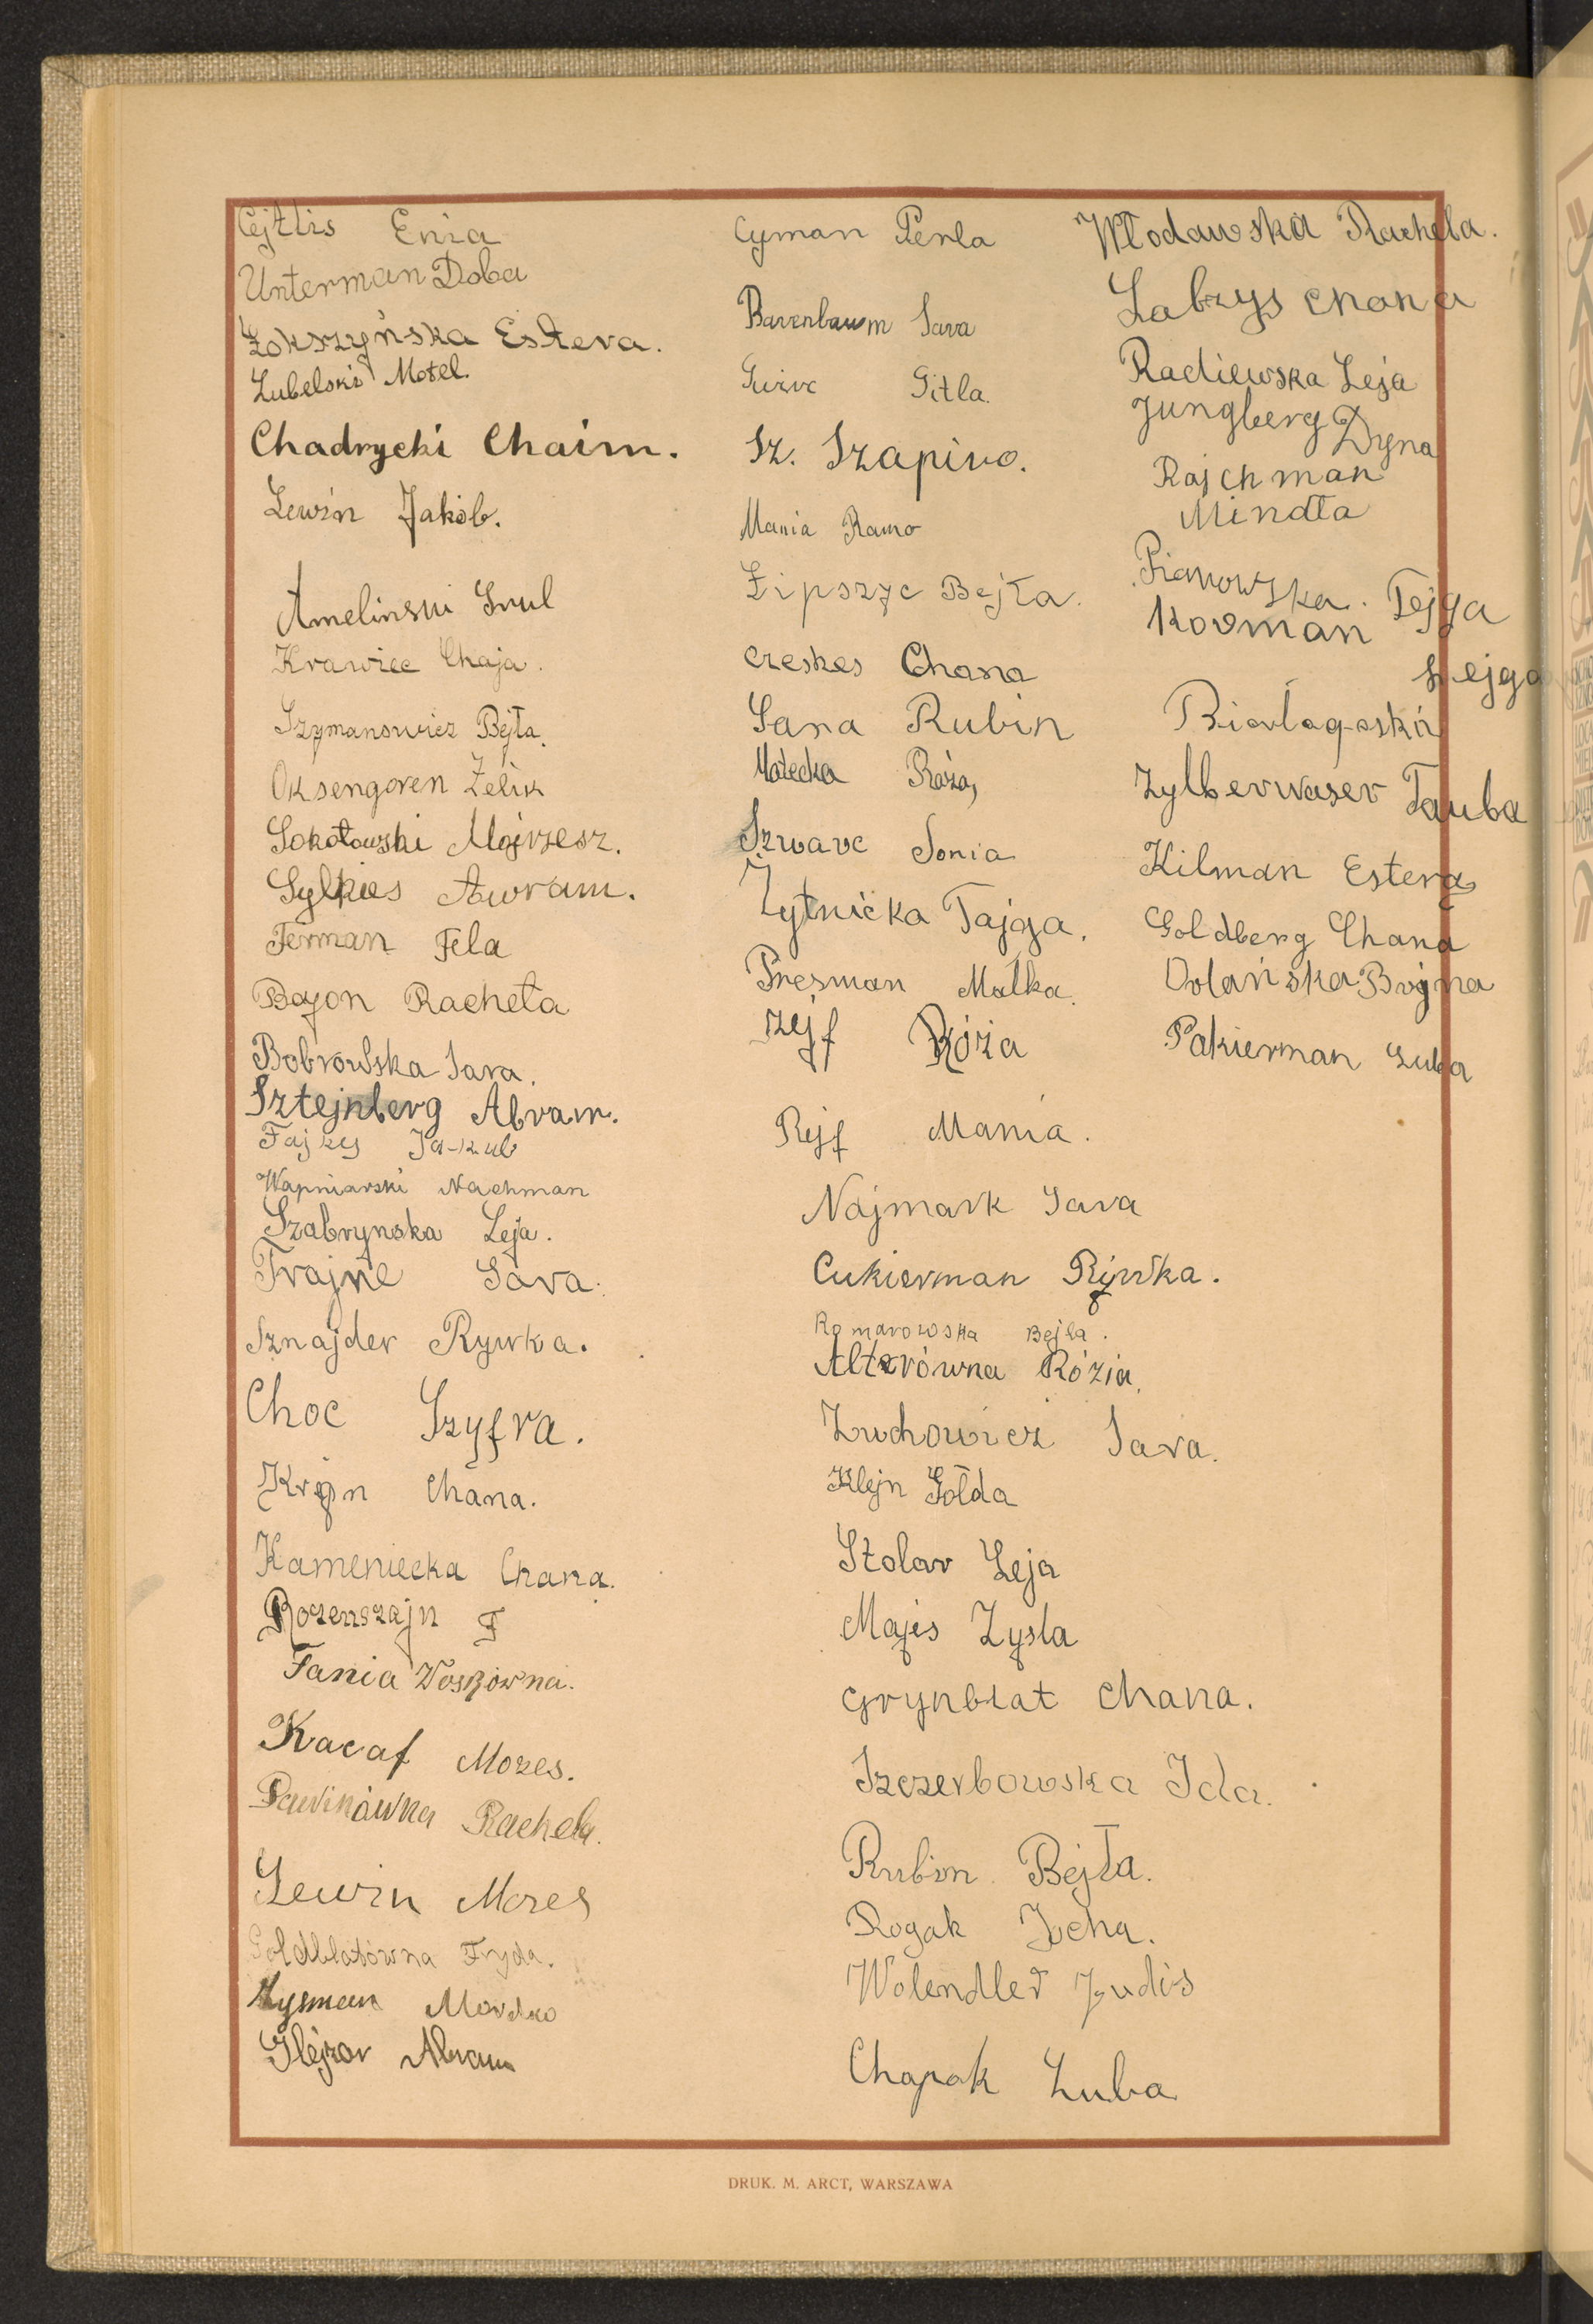 Cejtlis Enia
Unterman Doba
Łokszyńska Estera.
Lubelski Motel.
Chadrycki Chaim.
Lewin Jakób.
Amelinski Srul
Krawiec Chaja.
Szymanowicz Bejła.
Oksengoren Zelik
Sokołowski Mojrzesz.
Sylkies Awram.
Ferman Fela
Bojon Racheła
Bobrowska Sara.
Sztejnberg Abram.
Fajzes Ja-kub
Wapniarski Nachman
Szabrynska Leja.
Frajne Sara.
Sznajder Rywka.
Choc Szyfra.
Kryn Chana.
Kameniecka Chana.
Rozenszajn F
Fania Woskówna.
Kacaf Mozes.
Rachela.
Lewin Mozes
Goldblatówna Fryda.
Zysman Mordko
Glejzor Abram
Cyman Perla
Barenbaum Sara
Gitla.
Sz. Szapiro.
Mania Ramo
Lipszyc Bejła.
Czeskes Chana
Sara Rubin
Małecka Róża,
Szwarc Sonia
Żytnicka Fajga.
Presman Małka.
Rejf Róża
Rejf Mania.
Najmark Sara
Cukierman Rywka.
Romarowska Bejla.
Alterówna Rózia.
Żuchowicz Sara.
Klejn Gołda
Stolar Leja
Majes Zysla
Grynblat Chana.
Szczerbowska Ida.
Rubin Bejła.
Rogak Icha.
Wolendler Judis
Chapak Luba
Włodawska Rachela.
Labzys Chana
Radiewska Leja
Jungberg Dyna
Rajchman
Mindla
Pianowska. Fejga
Korman
Fejga
Zylberwaser Tauba
Kilman Estera
Goldberg Chana
Orlańska Brajna
Pakierman Luba
DRUK. M. ARCT, WARSZAWA